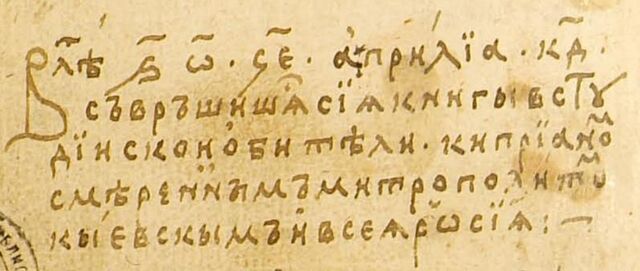 В лѣⷮ ҂ѕ҃ ѡ҃ . ч҃е . а҆прїлїа . к҃д .
съвръшишѧ сїѧ книгы в стꙋ
дїискои ѻбитѣли . кипрїаноⷨ
смѣреннымъ митрополитѡⷨ
кыевскымъ и всеѧ рѡсїѧ :—